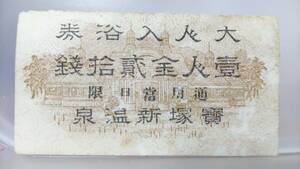 大人入浴券
壹人金貳拾錢
通用當日限
寶塚新温泉